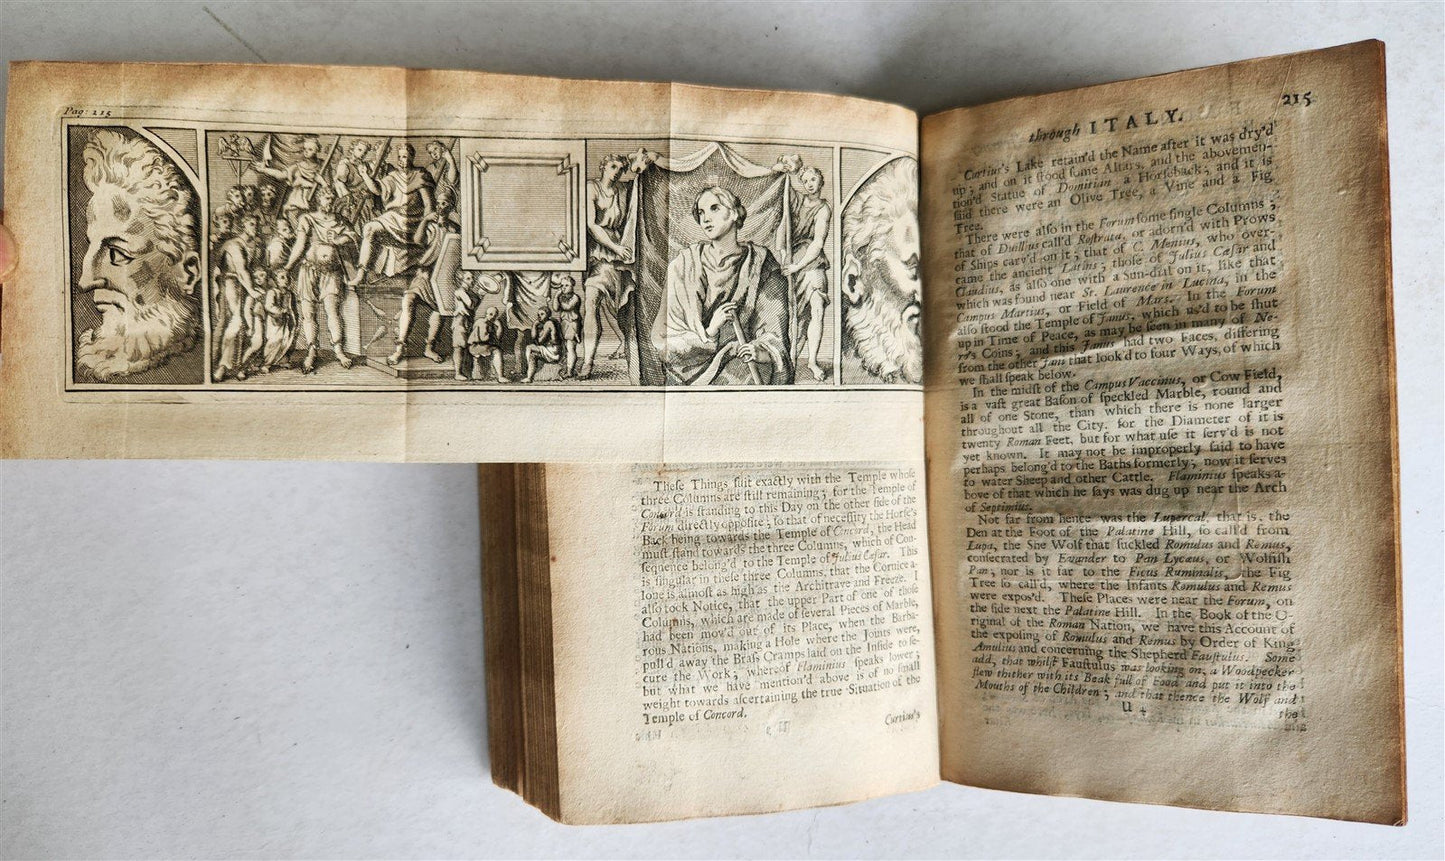 Pag: 215
Theſe Things ſuit exactly with the Temple whoſe
three Columns are ſtill remaining; for the Temple of
Concord is ſtanding to this Day on the other ſide of the
Forum directly oppoſite; ſo that of neceſſity the Horſe's
Back being towards the Temple of Concord, the Head
muſt ſtand towards the three Columns, which of Con-
ſequence belong'd to the Temple of Julius Cæſar. This
is ſingular in theſe three Columns, that the Cornice a-
lone is almoſt as high as the Architrave and Freeze. I
alſo took Notice, that the upper Part of one of thoſe
Columns, which are made of ſeveral Pieces of Marble,
had been mov'd out of its Place, when the Barba-
rous Nations, making a Hole where the Joints were,
pull'd away the Braſs Cramps laid on the Inſide to ſe-
cure the Work; whereof Flaminius ſpeaks lower;
but what we have mention'd above is of no ſmall
weight towards aſcertaining the true Situation of the
Temple of Concord.
Curtius's
through ITALY. 215
Curtius's Lake retain'd the Name after it was dry'd
up; and on it ſtood ſome Altars, and the abovemen-
tion'd Statue of Domitian a Horſeback; and it is
ſaid there were an Olive Tree, a Vine and a Fig
Tree.
There were alſo in the Forum ſome ſingle Columns;
that of Duillius call'd Roſtrata, or adorn'd with Prows
of Ships carv'd on it; that of C. Menius, who over-
came the ancient Latins; thoſe of Julius Cæſar and
Claudius, as alſo one with a Sun-dial on it, like that
which was found near St. Laurence in Lucina, in the
Campus Martius, or Field of Mars. In the Forum
alſo ſtood the Temple of Janus, which us'd to be ſhut
up in Time of Peace, as may be ſeen in many of Ne-
ro's Coins; and this Janus had two Faces, differing
from the other Jani that look'd to four Ways, of which
we ſhall ſpeak below.
In the midſt of the Campus Vaccinus, or Cow Field,
is a vaſt great Baſon of ſpeckled Marble, round and
all of one Stone, than which there is none larger
throughout all the City, for the Diameter of it is
twenty Roman Feet, but for what uſe it ſerv'd is not
yet known. It may not be improperly ſaid to have
perhaps belong'd to the Baths formerly; now it ſerves
to water Sheep and other Cattle. Flaminius ſpeaks a-
bove of that which he ſays was dug up near the Arch
of Septimius.
Not far from hence was the Lupercal, that is, the
Den at the Foot of the Palatine Hill, ſo call'd from
Lupa, the She Wolf that ſuckled Romulus and Remus,
conſecrated by Evander to Pan Lycæus, or Wolfiſh
Pan; nor is it far to the Ficus Ruminalis, the Fig
Tree ſo call'd, where the Infants Romulus and Remus
were expos'd. Theſe Places were near the Forum, on
the ſide next the Palatine Hill. In the Book of the O-
riginal of the Roman Nation, we have this Account of
the expoſing of Romulus and Remus by Order of King
Amulius and concerning the Shepherd Fauſtulus. Some
add, that whilſt Fauſtulus was looking on, a Woodpecker
flew thither with its Beak full of Food and put it into the
Mouths of the Children; and that thence the Wolf and
U 4 the